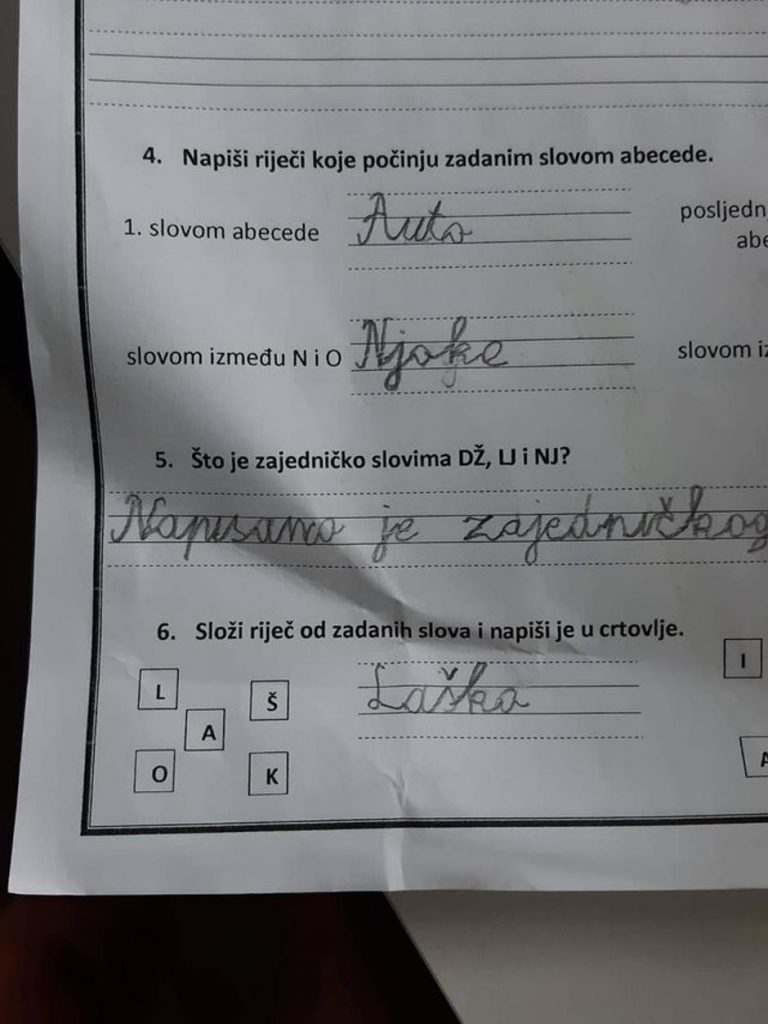 4. Napiši riječi koje počinju zadanim slovom abecede.
1. slovom abecede Auto posljednj
abe
slovom između N i O Njoke slovom iz
5. Što je zajedničko slovima DŽ, LJ i NJ?
Napisano je zajedničkog
6. Složi riječ od zadanih slova i napiši je u crtovlje.
I
L Š Laško
A
O K A